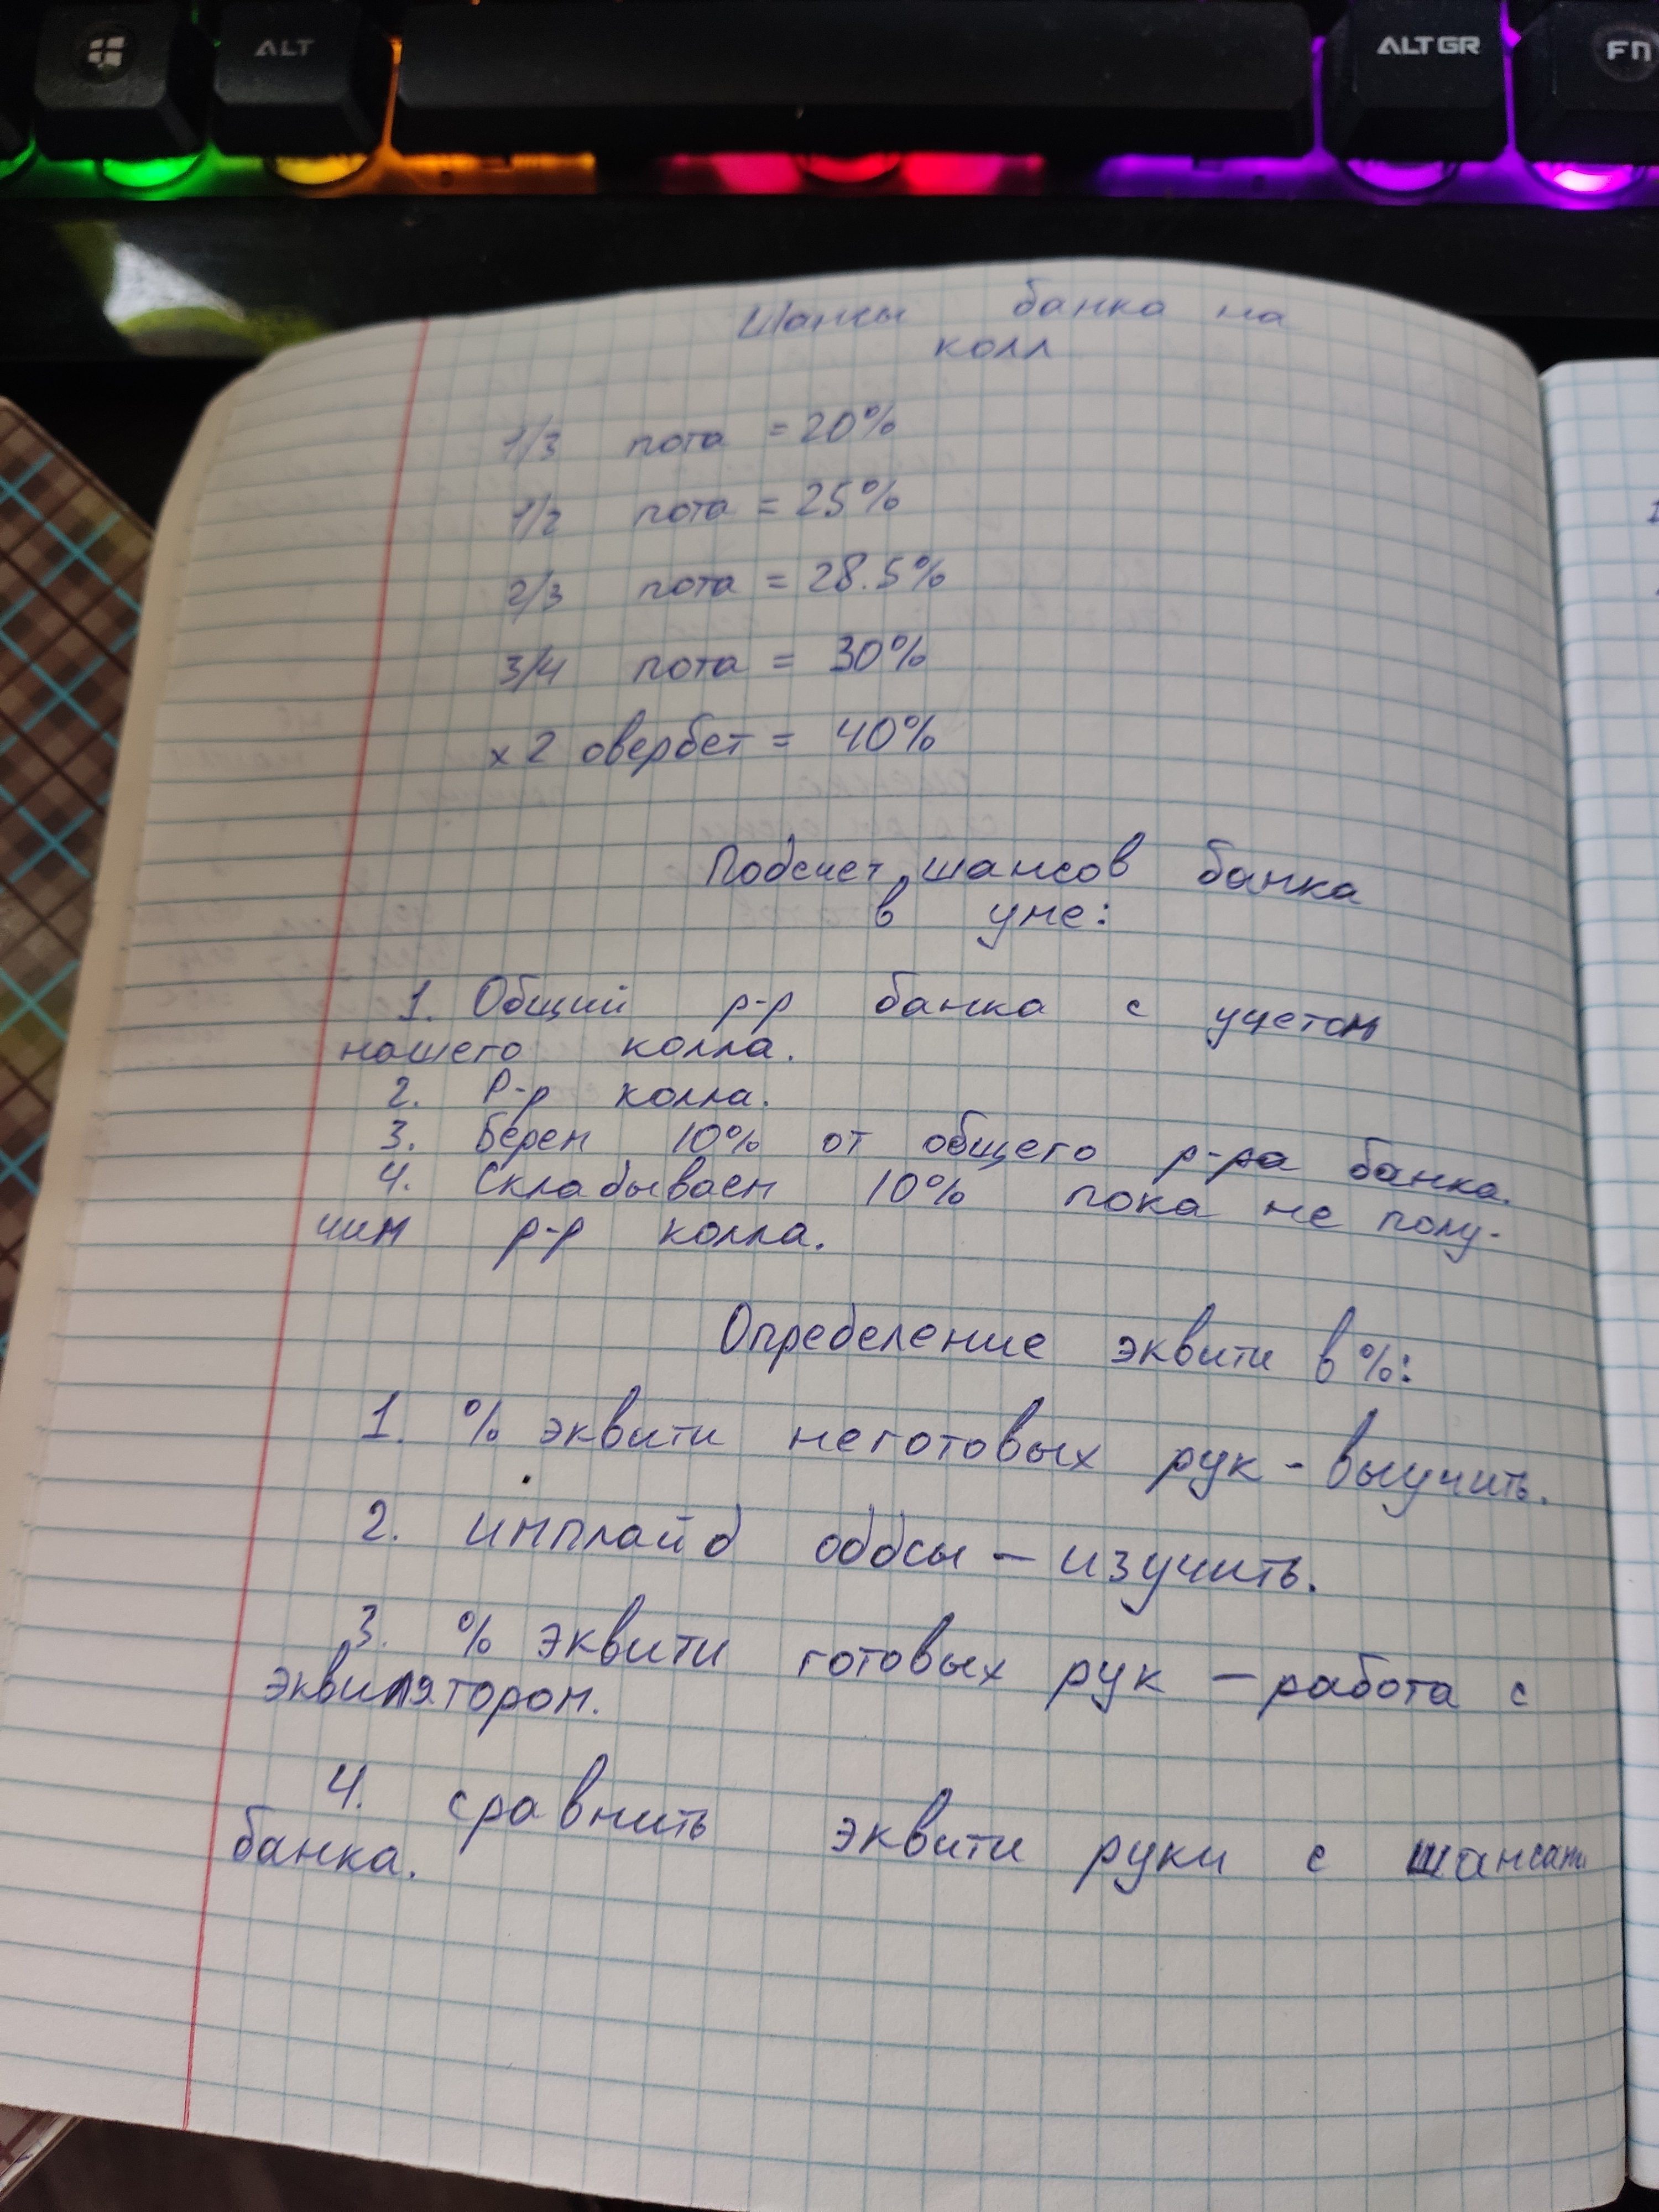 ALT
ALT GR
Fn
Шансы банка на
колл
1/3 пота = 20%
1/2 пота = 25%
2/3 пота = 28.5%
3/4 пота = 30%
x2 овербет = 40%
Подсчет шансов банка
в уме:
1. Общий р-р банка с учетом
нашего колла.
2. Р-р колла.
3. Берем 10% от общего р-ра банка.
4. Складываем 10% пока не полу-
чим р-р колла.
Определение эквити в %:
1. % эквити неготовых рук - выучить.
2. имплайд оддсы - изучить.
3. % эквити готовых рук - работа с
эквилятором.
4. сравнить эквити руки с шансами
банка.